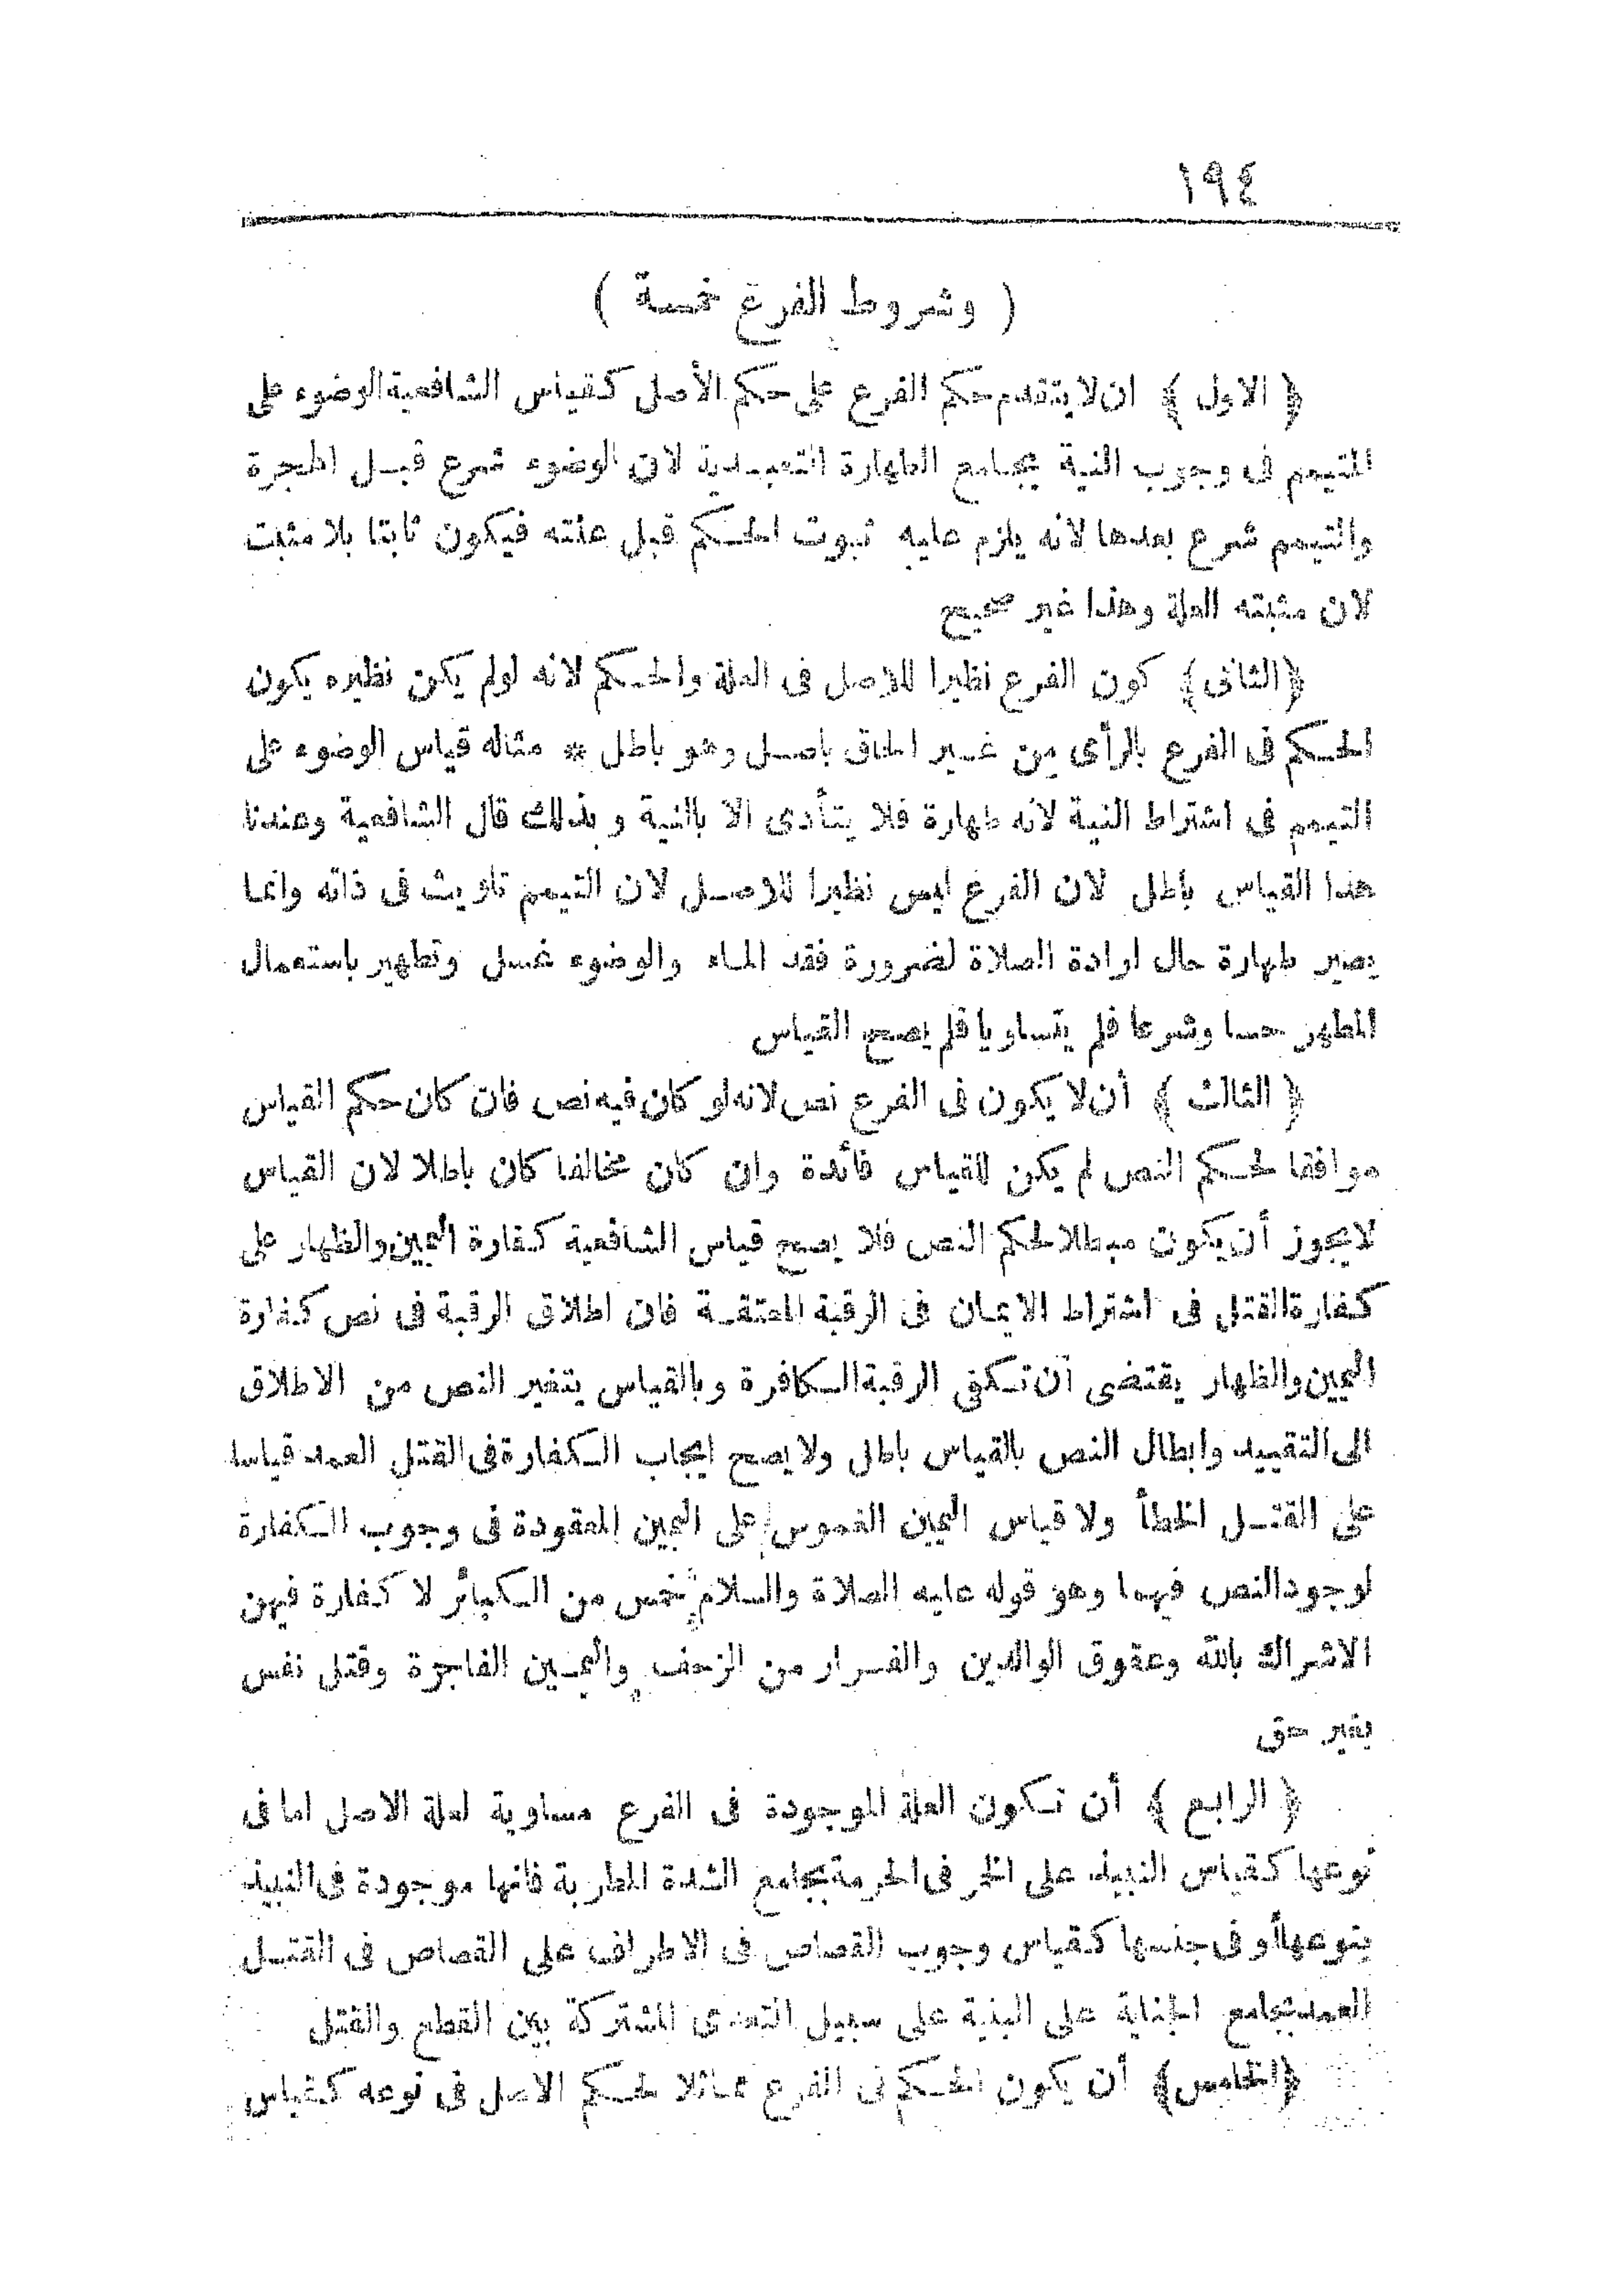 ١٩٤
( وشروط الفرع خمسة )
﴿ الاول ﴾ ان لا يتقدم حكم الفرع على حكم الأصل كقياس الشافعية الوضوء على
التيمم فى وجوب النية بجامع الطهارة التعبدية لان الوضوء شرع قبل الهجرة
والتيمم شرع بعدها لانه يلزم عليه ثبوت الحكم قبل علته فيكون ثابتا بلا مثبت
لان مثبته العلة وهذا غير صحيح
﴿ الثانى ﴾ كون الفرع نظيرا للاصل فى العلة والحكم لانه لو لم يكن نظيره يكون
الحكم فى الفرع بالرأى من غير الحاق باصل وهو باطل * مثاله قياس الوضوء على
التيمم فى اشتراط النية لانه طهارة فلا يتأدى الا بالنية وبذلك قال الشافعية وعندنا
هذا القياس باطل لان الفرع ليس نظيرا للاصل لان التيمم تلويث فى ذاته وانما
يصير طهارة حال ارادة الصلاة لضرورة فقد الماء والوضوء غسل وتطهير باستعمال
المطهر حسا وشرعا فلم يتساويا فلم يصح القياس
﴿ الثالث ﴾ أن لا يكون فى الفرع نص لانه لو كان فيه نص فان كان حكم القياس
موافقا لحكم النص لم يكن للقياس فائدة وان كان مخالفا كان باطلا لان القياس
لا يجوز أن يكون مبطلا لحكم النص فلا يصح قياس الشافعية كفارة اليمين والظهار على
كفارة القتل فى اشتراط الايمان فى الرقبة المعتقة فان اطلاق الرقبة فى نص كفارة
اليمين والظهار يقتضى أن تكفى الرقبة الكافرة وبالقياس يتغير النص من الاطلاق
الى التقييد وابطال النص بالقياس باطل ولا يصح ايجاب الكفارة فى القتل العمد قياسا
على القتل الخطأ ولا قياس اليمين الغموس على اليمين المعقودة فى وجوب الكفارة
لوجود النص فيهما وهو قوله عليه الصلاة والسلام خمس من الكبائر لا كفارة فيهن
الاشراك بالله وعقوق الوالدين والفرار من الزحف واليمين الفاجرة وقتل نفس
بغير حق
﴿ الرابع ﴾ أن تكون العلة الموجودة فى الفرع مساوية لعلة الاصل اما فى
نوعها كقياس النبيذ على الخمر فى الحرمة بجامع الشدة المطربة فانها موجودة فى النبيذ
بنوعها أو فى جنسها كقياس وجوب القصاص فى الاطراف على القصاص فى القتل
العمد بجامع الجناية على البنية على سبيل التعدى المشتركة بين القطع والقتل
﴿ الخامس ﴾ أن يكون الحكم فى الفرع مماثلا لحكم الاصل فى نوعه كقياس